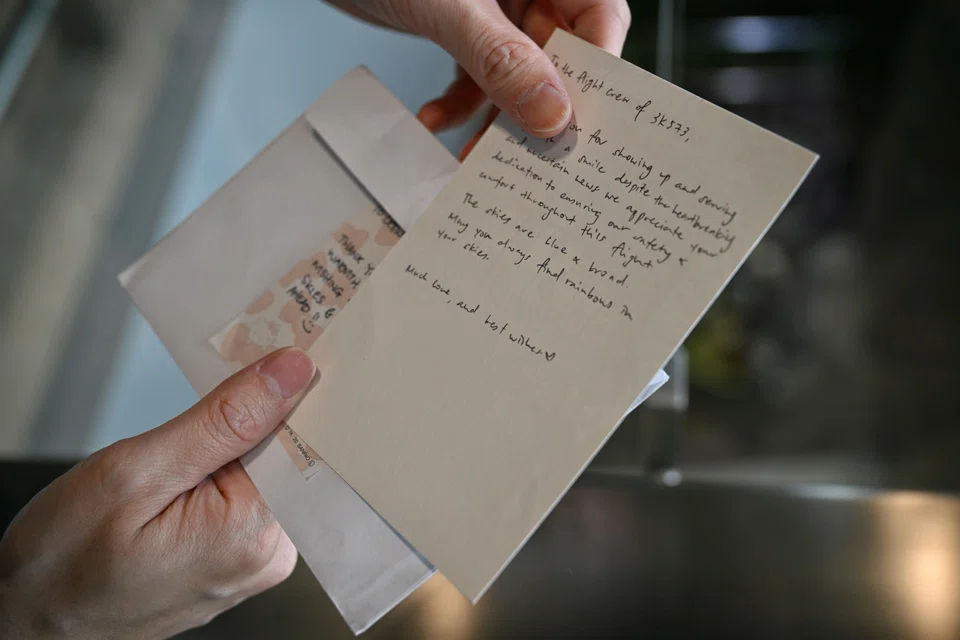 To the flight crew of 3K573,
for showing up and serving
a smile despite the heartbreaking
uncertain news. we appreciate your
dedication to ensuring our safety &
comfort throughout this flight
The skies are blue & broad.
May you always find rainbows in
your skies.
Much love, and best wishes
THANK
SKIES